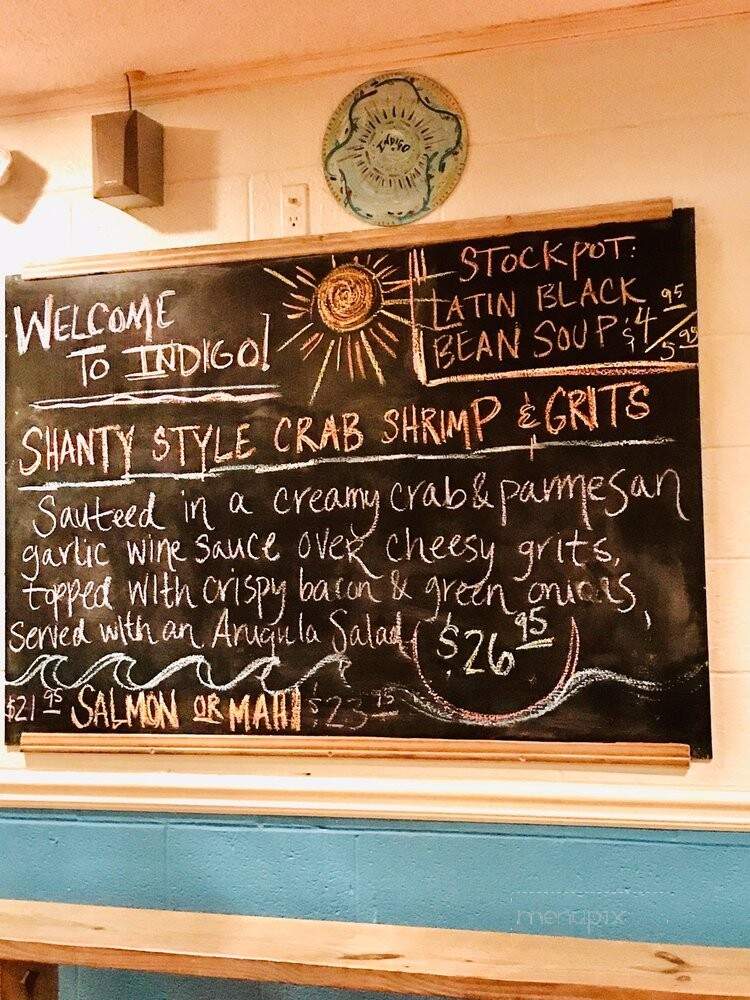 Indigo
WELCOME
TO INDIGO!
STOCKPOT:
LATIN BLACK
BEAN SOUP $4 95 / 5 95
SHANTY STYLE CRAB SHRIMP & GRITS
Sauteed in a creamy crab & parmesan
garlic wine sauce over cheesy grits,
topped with crispy bacon & green onions,
served with an Arugula Salad
$26 95
$21 95 SALMON OR MAHI $23 75
menupix